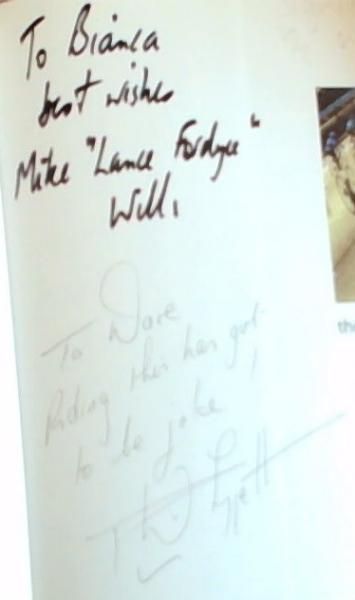 To Bianca
best wishes
Mike "Lance Fordyce"
Will.
To Dave
Riding this has got
to be joke !
th